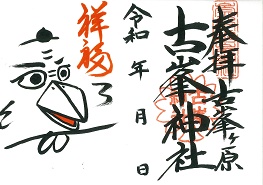 奉拝
古峯ヶ原
古峯神社
令和 年 月 日
祥福